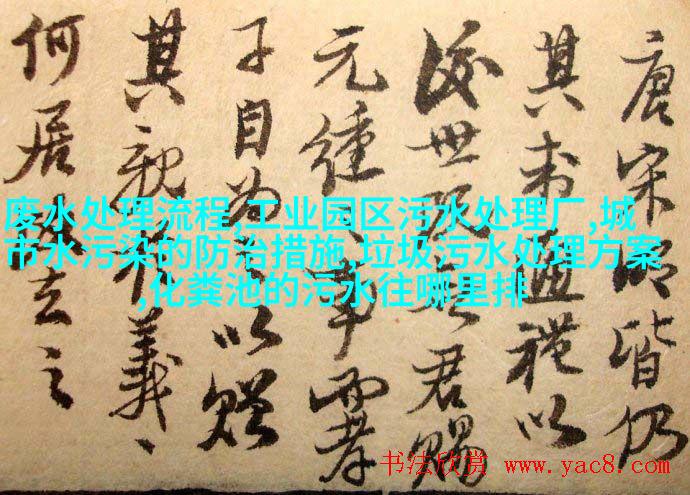 唐宋明皆仍
其禮以
後世既無君賜
元纁事而孝
子自为以贈
其親義、
何居去之
废水处理流程,工业园区污水处理厂,城
市水污染的防治措施,垃圾污水处理方案
,化粪池的污水往哪里排
书法欣赏 www.yac8.com